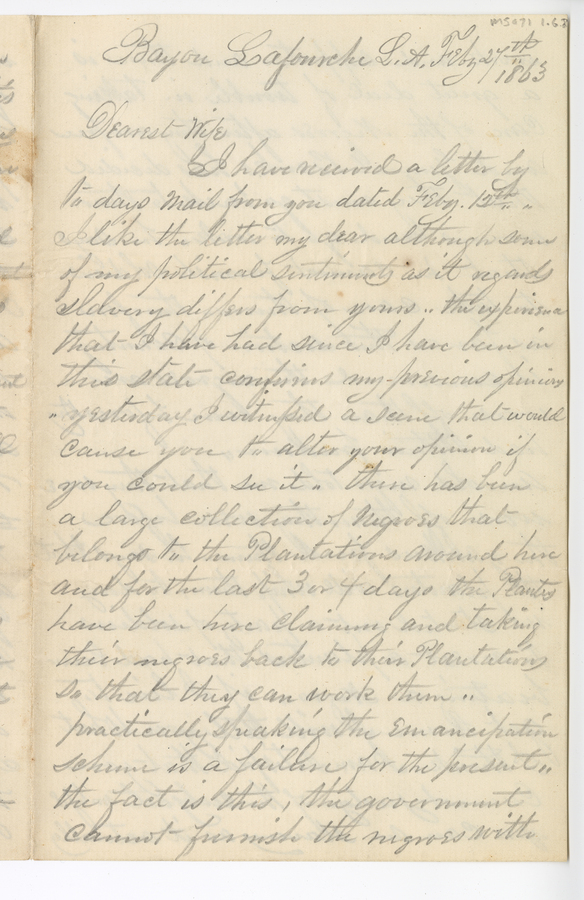 MS071 1.63
Bayou Lafourche L.A. Feby 27th
1863
Dearest Wife
I have received a letter by
to days mail from you dated Feby. 12th "
I like the letter my dear although some
of my political sentiments as it regards
slavery differs from yours .. the experience
that I have had since I have been in
this state confirms my previous opinion
" yesterday I witnessed a scene that would
cause you to alter your opinion if
you could see it .. there has been
a large collection of Negroes that
belongs to the Plantations around here
and for the last 3 or 4 days the Planters
have been here claiming and taking
their negroes back to their Plantations
so that they can work them ..
practically speaking the Emancipation
scheme is a failure for the present ..
the fact is this, the government
cannot furnish the negroes with